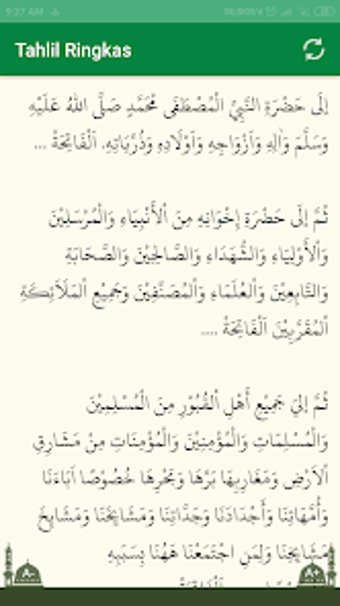 9:27 AM
Tahlil Ringkas
إِلَى حَضْرَةِ النَّبِيِّ الْمُصْطَفَى مُحَمَّدٍ صَلَّى اللهُ عَلَيْهِ
وَسَلَّمَ وَاٰلِهِ وَاَزْوَاجِهِ وَاَوْلَادِهِ وَذُرِّيَاتِهِ. اَلْفَاتِحَةْ ...
ثُمَّ إِلَى حَضْرَةِ إِخْوَانِهِ مِنَ الْأَنْبِيَاءِ وَالْمُرْسَلِيْنَ
وَالْأَوْلِيَاءِ وَالشُّهَدَاءِ وَالصَّالِحِيْنَ وَالصَّحَابَةِ
وَالتَّابِعِيْنَ وَالْعُلَمَاءِ وَالْمُصَنِّفِيْنَ وَجَمِيْعِ الْمَلَائِكَةِ
الْمُقَرَّبِيْنَ اَلْفَاتِحَةْ ....
ثُمَّ إِلَى جَمِيْعِ أَهْلِ الْقُبُوْرِ مِنَ الْمُسْلِمِيْنَ
وَالْمُسْلِمَاتِ وَالْمُؤْمِنِيْنَ وَالْمُؤْمِنَاتِ مِنْ مَشَارِقِ
الْاَرْضِ وَمَغَارِبِهَا بَرِّهَا وَبَحْرِهَا خُصُوْصًا اٰبَاءَنَا
وَأُمَّهَاتِنَا وَأَجْدَادَنَا وَجَدَّاتِنَا وَمَشَايِخَنَا وَمَشَايِخَ
مَشَايِخِنَا وَلِمَنِ اجْتَمَعْنَا هٰهُنَا بِسَبَبِهِ
A-
A+